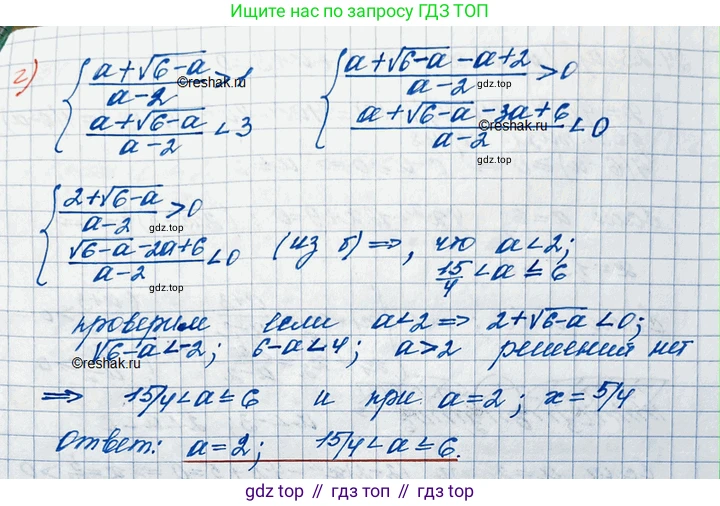 Ищите нас по запросу ГДЗ ТОП
г) { (a+√6-a)/(a-2) > 1 { (a+√6-a -a+2)/(a-2) > 0
©reshak.ru
gdz.top
{ (a+√6-a)/(a-2) < 3 { (a+√6-a -3a+6)/(a-2) < 0
gdz.top
©reshak.ru
gdz.top
{ (2+√6-a)/(a-2) > 0
gdz.top
{ (√6-a -2a+6)/(a-2) < 0 (из б) ⇒, что a<2;
15/4 < a ≤ 6
gdz.top
проверим если a<2 ⇒ 2+√6-a <0;
√6-a <-2; 6-a<4; a>2 решений нет
©reshak.ru
gdz.top
⇒ 15/4 < a ≤ 6 и при a=2; x=5/4
gdz.top
Ответ: a=2; 15/4 < a ≤ 6.
gdz.top
gdz.top
gdz top // гдз топ // gdz.top